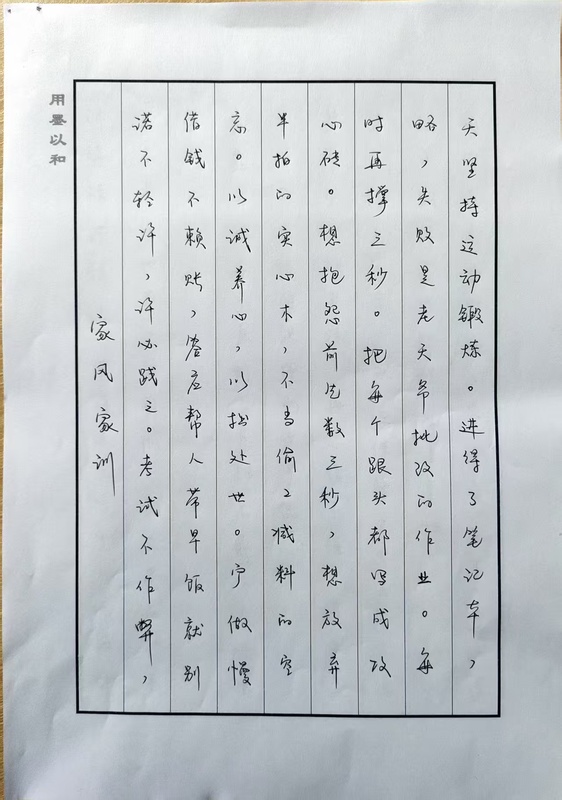 用墨以和
家风家训
诺不轻许，许必践之。考试不作弊，
借钱不赖账，答应帮人带早饭就别
忘。以诚养心，以拙处世。宁做慢
半拍的实心木，不当偷工减料的空
心砖。想抱怨前先数三秒，想放弃
时再撑三秒。把每个跟头都写成攻
略，失败是老天爷批改的作业。每
天坚持运动锻炼。进得了笔记本，